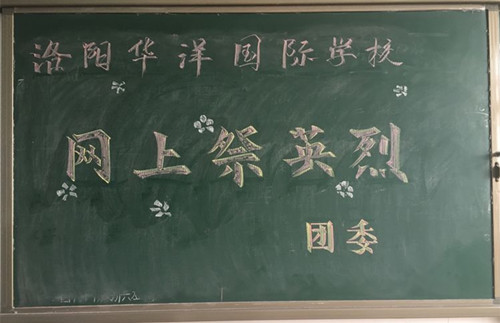 洛阳华洋国际学校
网上祭英烈
团委